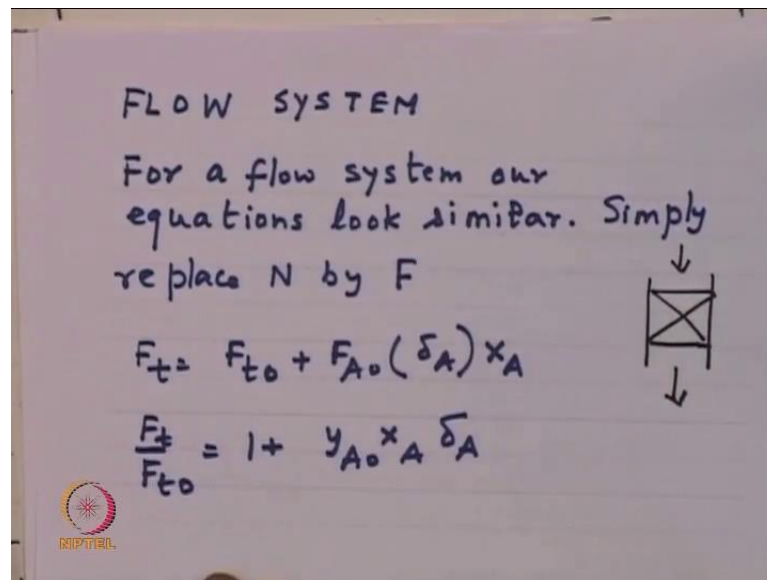 FLOW SYSTEM
For a flow system our
equations look similar. Simply
replace N by F
Ft = Fto + FAo (δA) xA
Ft/Fto = 1 + yAo xA δA
NPTEL